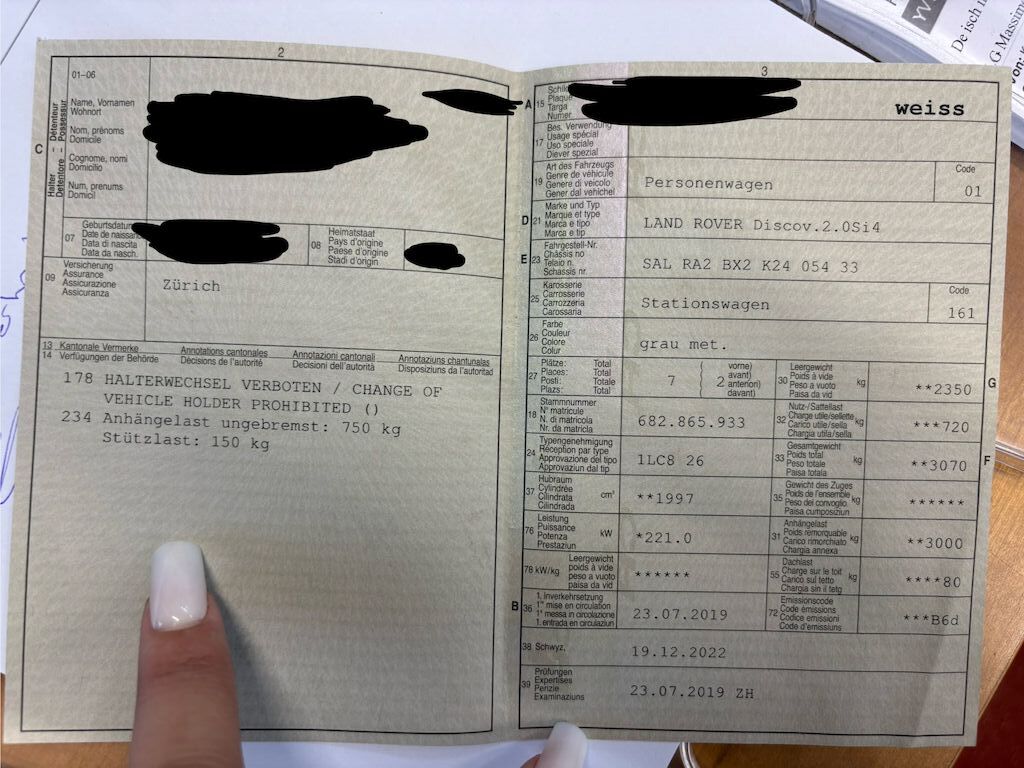 2
01–06
C
Halter – Détenteur
Detentore – Possessur
Name, Vornamen
Wohnort
Nom, prénoms
Domicile
Cognome, nomi
Domicilio
Num, prenums
Domicil
07
Geburtsdatum
Date de naissan
Data di nascita
Data da nasch.
08
Heimatstaat
Pays d'origine
Paese d'origine
Stadi d'origin
09
Versicherung
Assurance
Assicurazione
Assicuranza
Zürich
13 Kantonale Vermerke Annotations cantonales Annotazioni cantonali Annotaziuns chantunalas
14 Verfügungen der Behörde Décisions de l'autorité Decisioni dell'autorità Disposiziuns da l'autoritad
178 HALTERWECHSEL VERBOTEN / CHANGE OF
VEHICLE HOLDER PROHIBITED ()
234 Anhängelast ungebremst: 750 kg
Stützlast: 150 kg
3
A 15
Schil
Plaque
Targa
Numer
weiss
17
Bes. Verwendung
Usage spécial
Uso speciale
Diever spezial
19
Art des Fahrzeugs
Genre de véhicule
Genere di veicolo
Gener dal vehichel
Personenwagen
Code
01
D 21
Marke und Typ
Marque et type
Marca e tipo
Marca e tip
LAND ROVER Discov.2.0Si4
E 23
Fahrgestell-Nr.
Châssis no
Telaio n.
Schassis nr.
SAL RA2 BX2 K24 054 33
25
Karosserie
Carrosserie
Carrozzeria
Carossaria
Stationswagen
Code
161
26
Farbe
Couleur
Colore
Colur
grau met.
27
Plätze: Total
Places: Total
Posti: Totale
Plazs: Total
7
( vorne)
avant)
2 anteriori)
( davant)
30
Leergewicht
Poids à vide
Peso a vuoto
Paisa da vid
kg
**2350
G
18
Stammnummer
N° matricule
N. di matricola
Nr. da matricla
682.865.933
32
Nutz-/Sattellast
Charge utile/sellette
Carico utile/sella
Chargia utila/sella
kg
***720
24
Typengenehmigung
Réception par type
Approvazione del tipo
Approvaziun dal tip
1LC8 26
33
Gesamtgewicht
Poids total
Peso totale
Paisa totala
kg
**3070
F
37
Hubraum
Cylindrée
Cilindrata
Cilindrada
cm³
**1997
35
Gewicht des Zuges
Poids de l'ensemble
Peso del convoglio
Paisa cumposiziun
kg
******
76
Leistung
Puissance
Potenza
Prestaziun
kW
*221.0
31
Anhängelast
Poids remorquable
Carico rimorchiato
Chargia annexa
kg
**3000
78 kW/kg
Leergewicht
poids à vide
peso a vuoto
paisa da vid
******
55
Dachlast
Charge sur le toit
Carico sul tetto
Chargia sin il tetg
kg
****80
B 36
1. Inverkehrsetzung
1re mise en circulation
1a messa in circolazione
1. entrada en circulaziun
23.07.2019
72
Emissionscode
Code émissions
Codice emissioni
Code d'emissiuns
***B6d
38 Schwyz,
19.12.2022
39
Prüfungen
Expertises
Perizie
Examinaziuns
23.07.2019 ZH
YV
De isch i
G Massim
von: